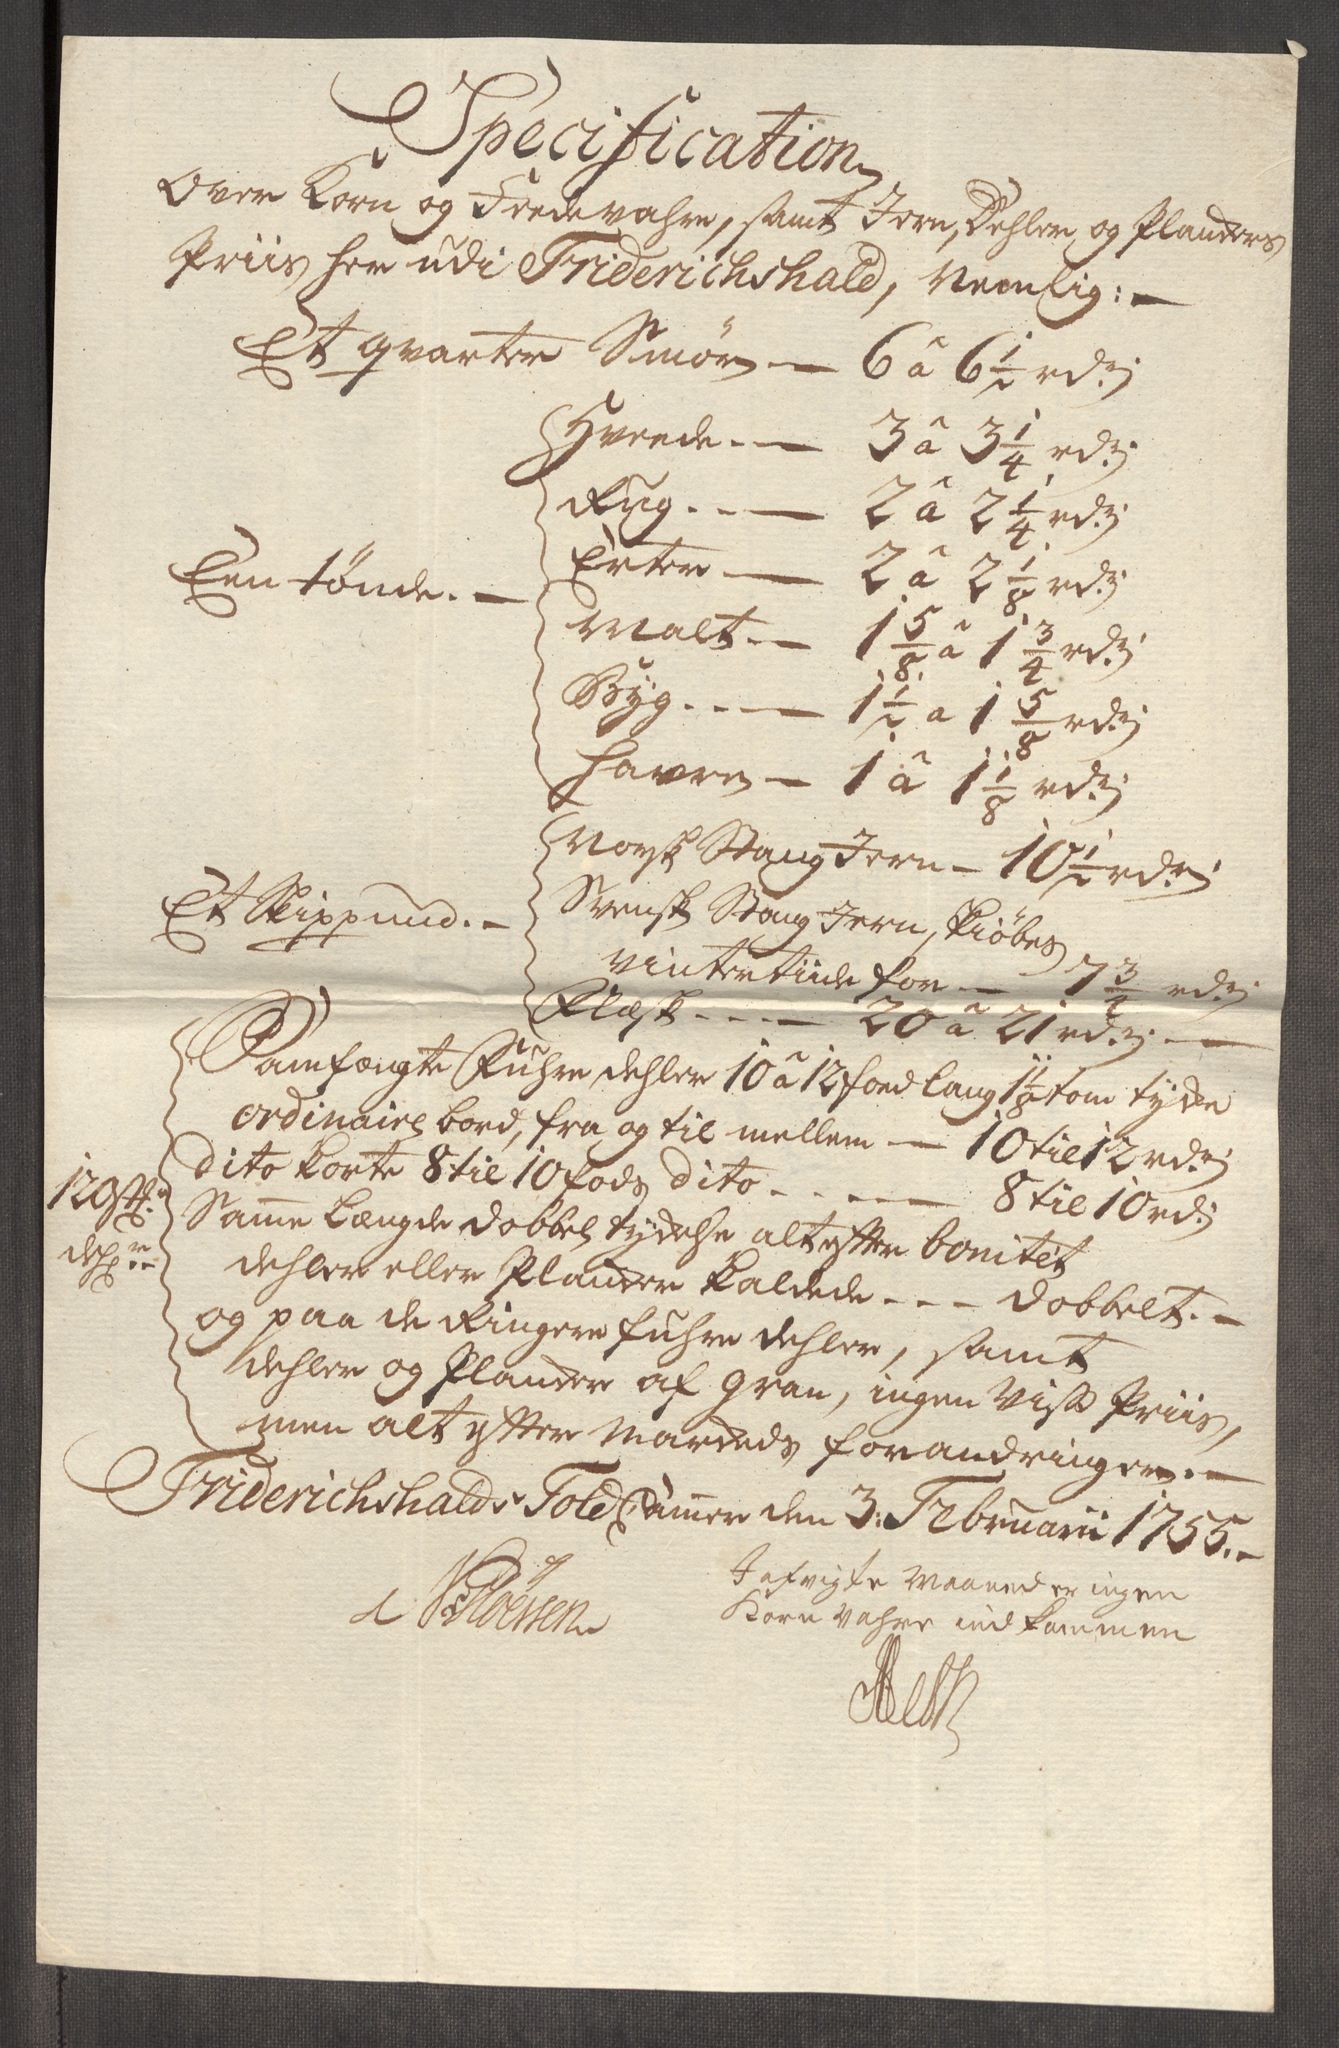 Specification
Over Korn og Fædevahre, samt Jern, Dehler og Planckers
Priis her udi Friderichshald, Nemlig:
Et qvarter Smør — 6 â 6 1/2 rd.
Hveede. — 3 â 3 1/4 rd.
Rug. — 2 â 2 1/4 rd.
Erter — 2 â 2 1/8 rd.
Een tønde. —
Malt. — 1 5/8 â 1 3/4 rd.
Byg. — 1 1/2 a 1 5/8 rd.
Havre — 1 â 1 1/8 rd.
Norsk Stang Jern — 10 1/2 rd.
Et Skippund. —
Svensk Stang Jern, kiøbes
vintertiide for — 7 3/4 rd.
Flæsk — 20 â 21 rd. —
Fuhre dehler 10 â 12 foed lang 1 1/8 tom tyke
ordinaire bord, fra og til mellem — 10 til 12 rd.
dito korte 8 til 10 fods dito — 8 til 10 rd.
120
Samme Længde dobbel tydelse alt efter bonitet
dehler eller Plancker kaldede — dobbelt. —
og paa de Ringere fuhre dehler, samt
dehler og Plancker af gran, ingen Viss Priis,
men alt efter Markeds forandringer. —
Friderichshalds Told Cammer den 3. Februarii 1755. —
I afvigte Maaned er ingen
Korn Vahre ind kommen